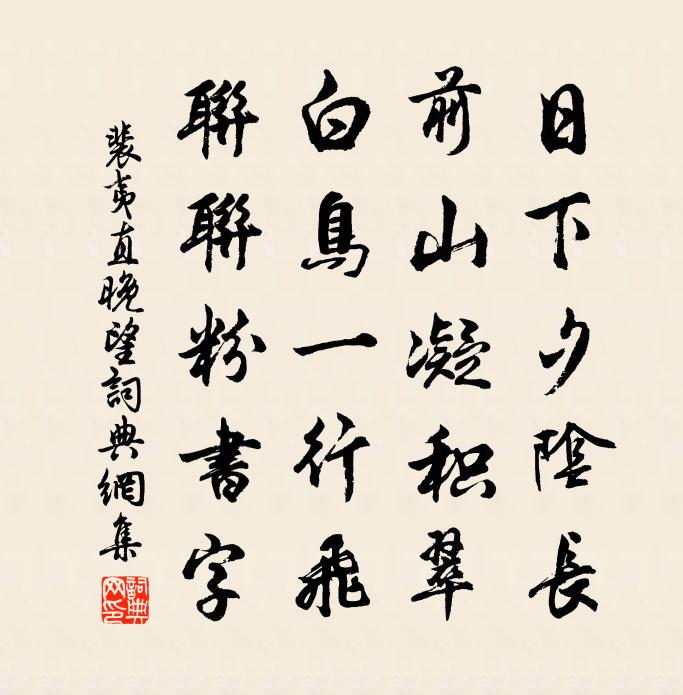 日下夕陰長
前山凝积翠
白鳥一行飛
聯聯粉書字
裴夷直晚望詞典網集
詞典網印